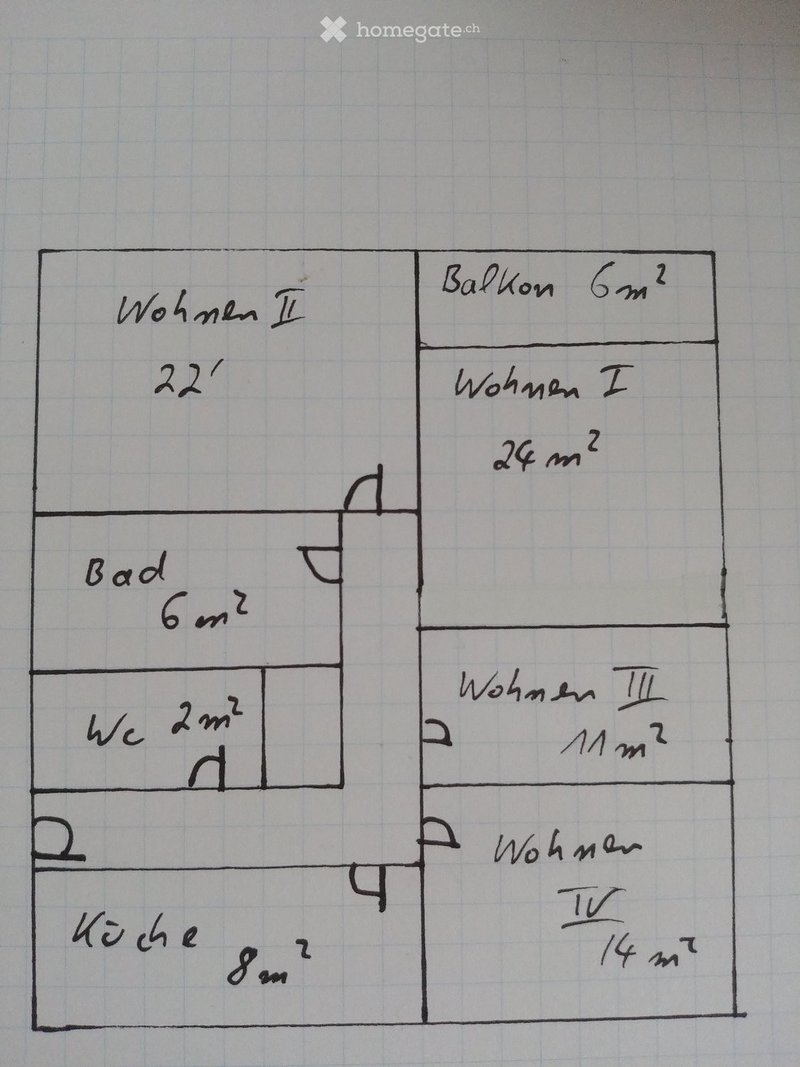 homegate.ch
Wohnen II
22'
Balkon 6m²
Wohnen I
24 m²
Bad
6 m²
Wc 2m²
Wohnen III
11 m²
Küche
8m²
Wohnen
IV
14 m²